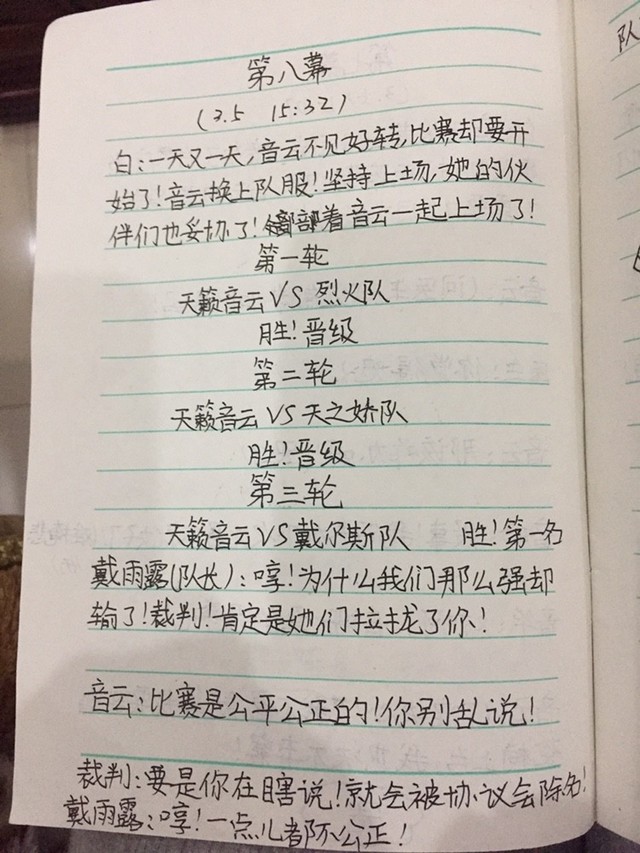 第八幕
(3.5 15:32)
白:一天又一天,音云不见好转,比赛却要开
始了!音云换上队服!坚持上场,她的伙
伴们也妥协了!陪着音云一起上场了!
第一轮
天籁音云VS烈火队
胜!晋级
第二轮
天籁音云VS天之娇队
胜!晋级
第三轮
天籁音云VS戴尔斯队 胜!第一名
戴雨露(队长):哼!为什么我们那么强却
输了!裁判!肯定是她们拉拢了你!
音云:比赛是公平公正的!你别乱说!
裁判:要是你在瞎说!就会被协议会除名!
戴雨露:哼!一点儿都不公正!
队